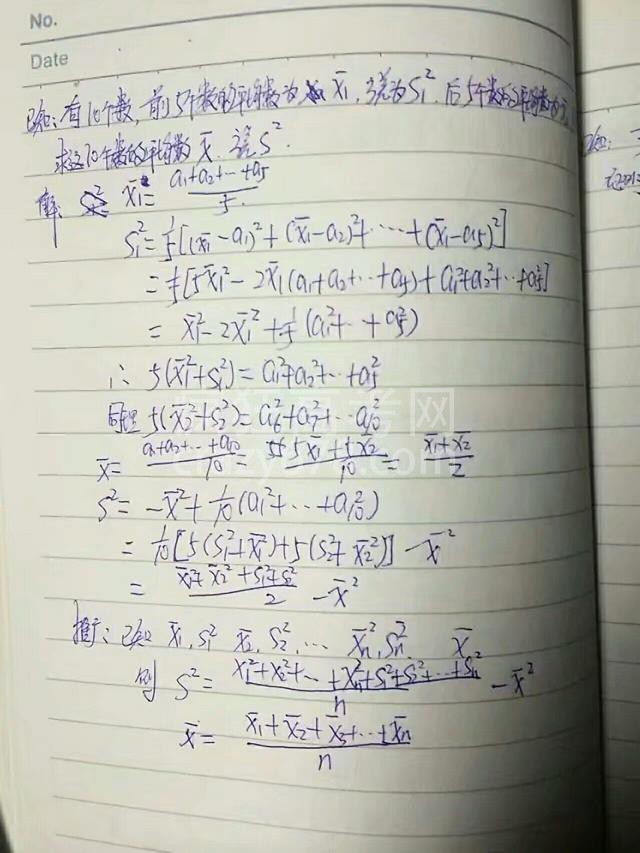 No.
Date
已知:有10个数,前5个数的平均数为 x̄₁,方差为S₁²,后5个数的平均数为
求这10个数的平均数 x̄ 方差S².
解 x̄₁= (a₁+a₂+…+a₅)/5
S₁²=1/5[(x̄₁-a₁)²+(x̄₁-a₂)²+…+(x̄₁-a₅)²]
=1/5[5x̄₁²-2x̄₁(a₁+a₂+…+a₅)+a₁²+a₂²+…+a₅²]
= x̄₁²-2x̄₁²+1/5(a₁²+…+a₅²)
∴ 5(x̄₁²+S₁²)=a₁²+a₂²+…+a₅²
同理 5(x̄₂²+S₂²)=a₆²+a₇²+…a₁₀²
x̄= (a₁+a₂+…+a₁₀)/10 = (5x̄₁+5x̄₂)/10 = (x̄₁+x̄₂)/2
S²= -x̄²+1/10(a₁²+…+a₁₀²)
= 1/10[5(S₁²+x̄₁²)+5(S₂²+x̄₂²)]-x̄²
= (x̄₁²+x̄₂²+S₁²+S₂²)/2 -x̄²
推广:已知 x̄₁,S₁² x̄₂,S₂²,… x̄ₙ²,Sₙ² x̄
则 S²= (x₁²+x₂²+…+x̄ₙ²+S₁²+S₂²+…+Sₙ²)/n -x̄²
x̄= (x̄₁+x̄₂+x̄₃+…+x̄ₙ)/n